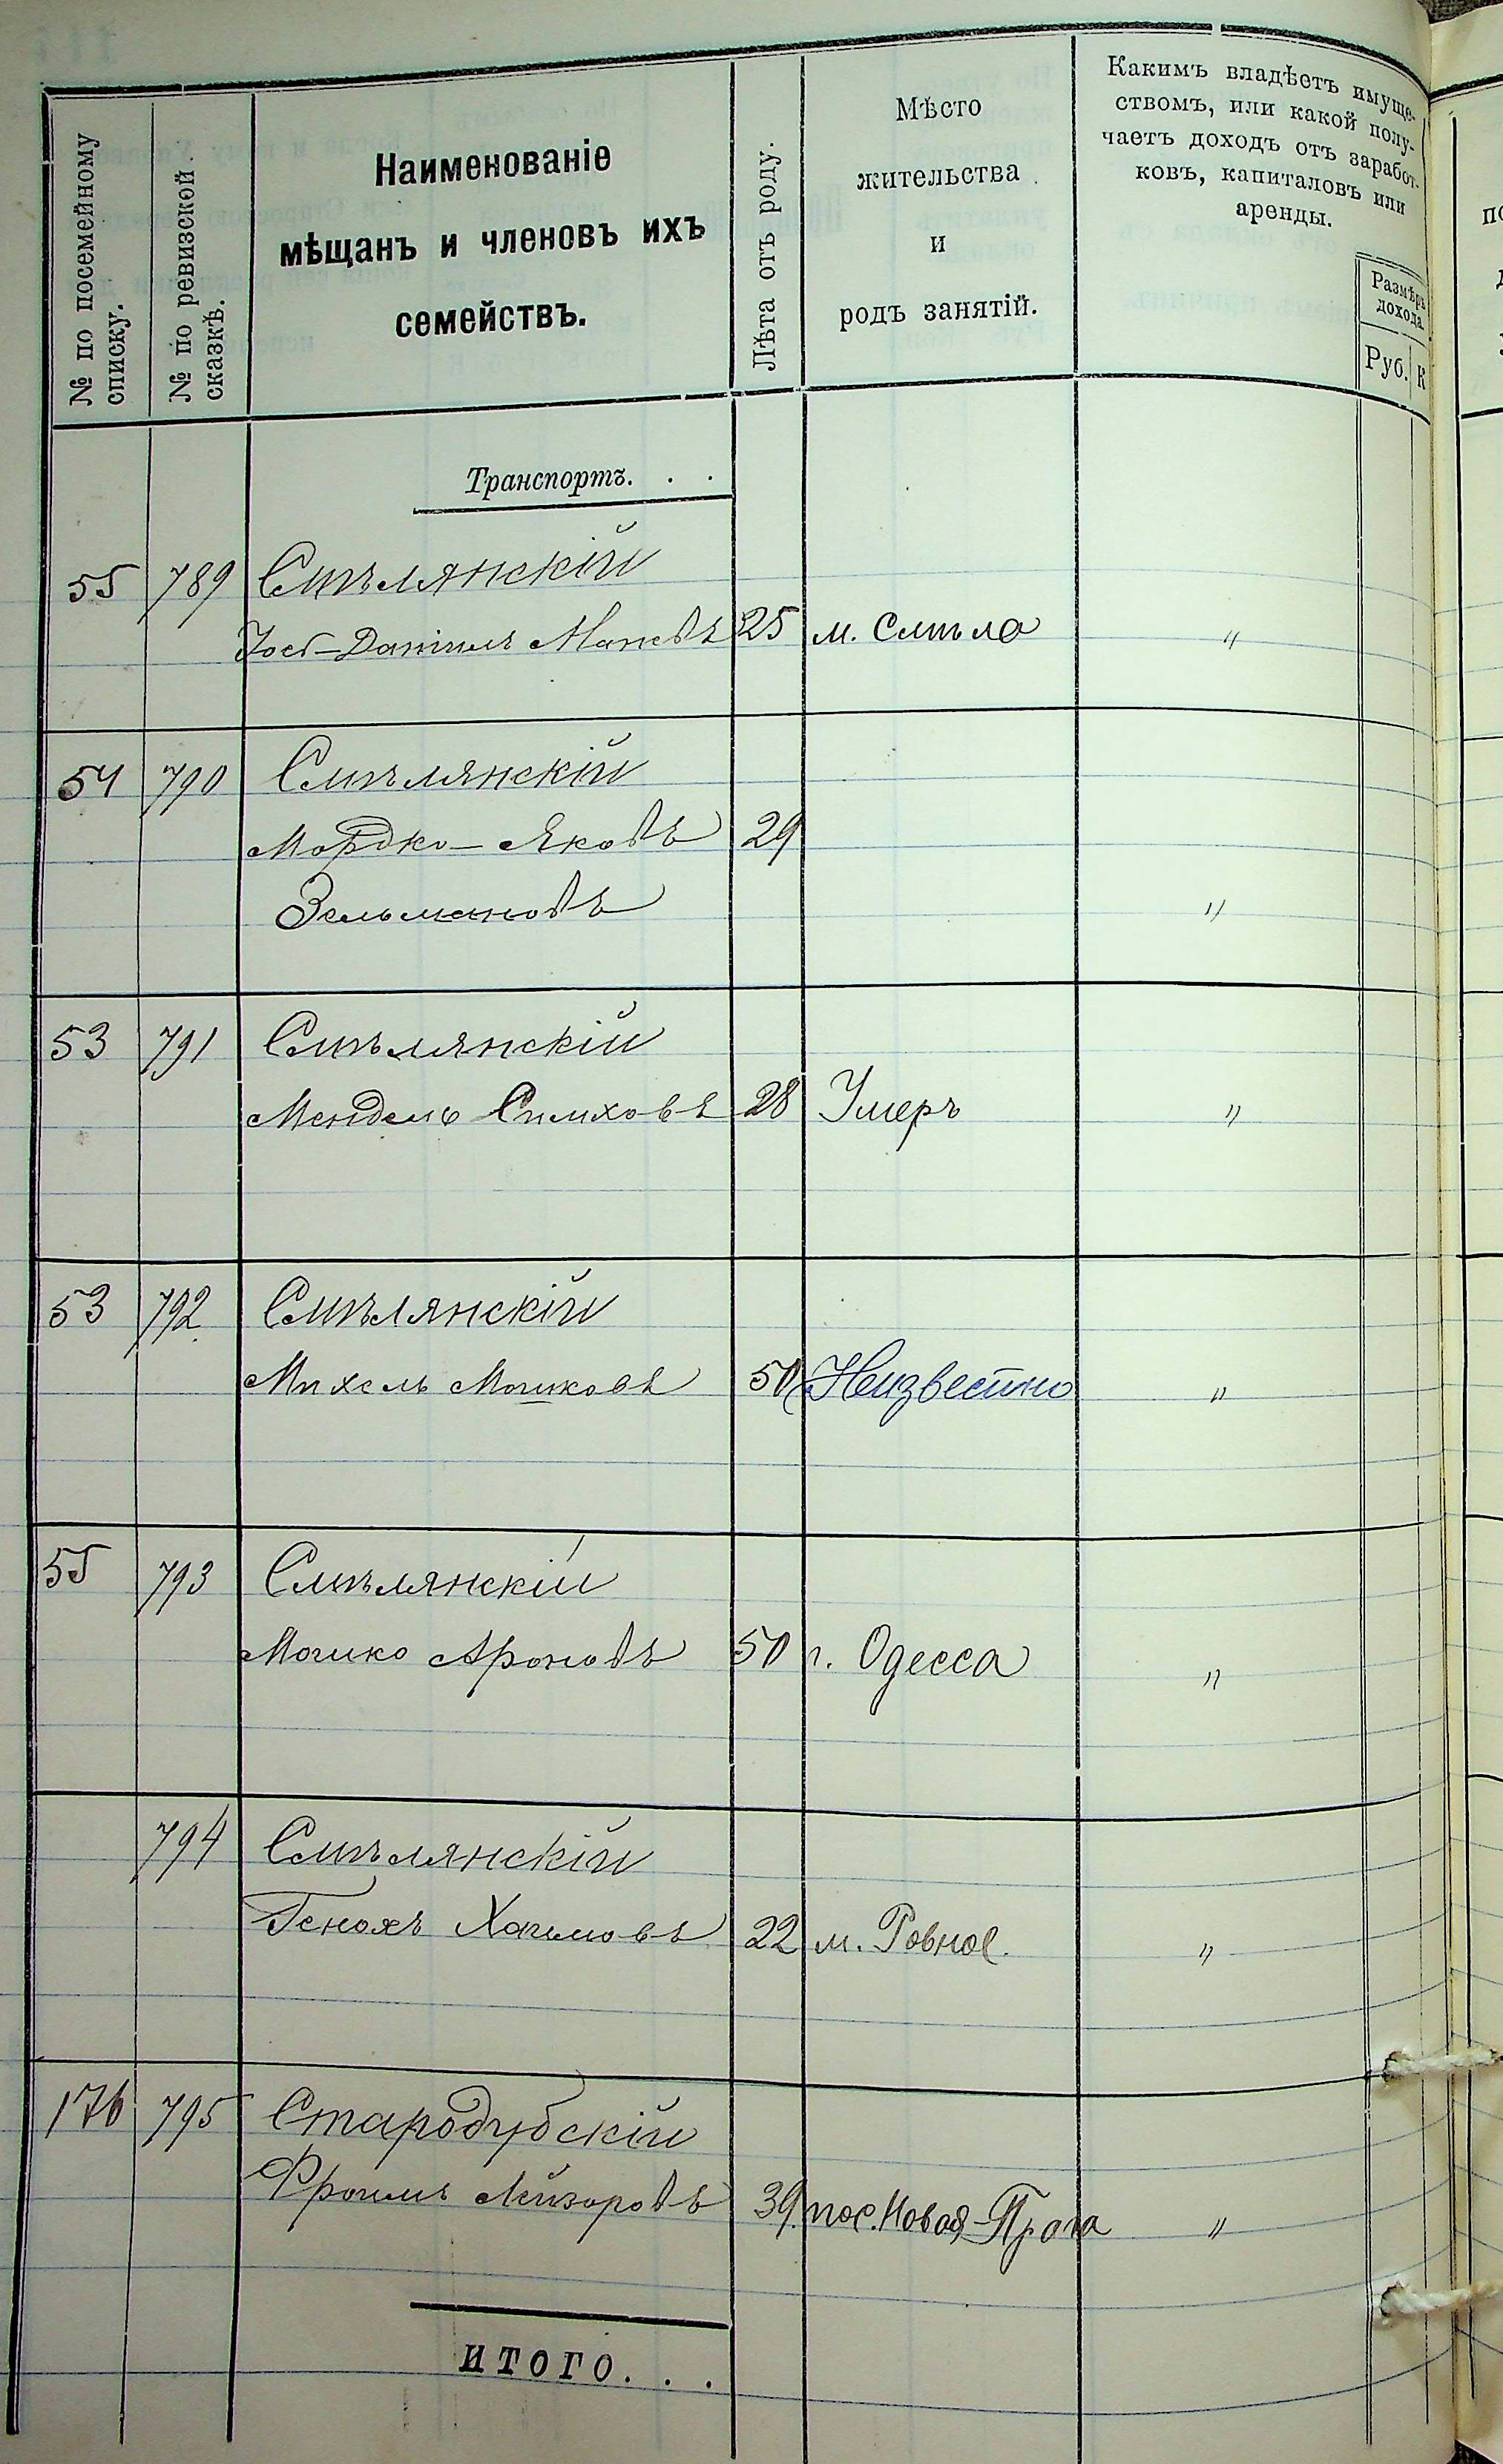 № по посемейному
списку.
№ по ревизской
сказкѣ.
Наименованіе
мѣщанъ и членовъ ихъ
семействъ.
Лѣта отъ роду.
Мѣсто
жительства
и
родъ занятій.
Какимъ владѣетъ имуще-
ствомъ, или какой полу-
чаетъ доходъ отъ заработ-
ковъ, капиталовъ или
аренды.
Размѣръ
дохода.
Руб. К
Транспортъ. . .
55 789 Смѣлянскій
Іось-Даніилъ 25 м. Смѣла "
54 790 Смѣлянскій
Мордко-Яковъ 29
Зельмановъ "
53 791 Смѣлянскій
Мендель Симховъ 28 Умеръ "
53 792 Смѣлянскій
Михель Мошковъ 50 Неизвестно "
55 793 Смѣлянскій
Мошко Ароновъ 50 г. Одесса "
794 Смѣлянскій
Генохъ Хаимовъ 22 м. Ровное. "
176 795 Стародубскій
Фроимъ Лейзоровъ 39 пос. Новая-Прага "
ИТОГО. . .